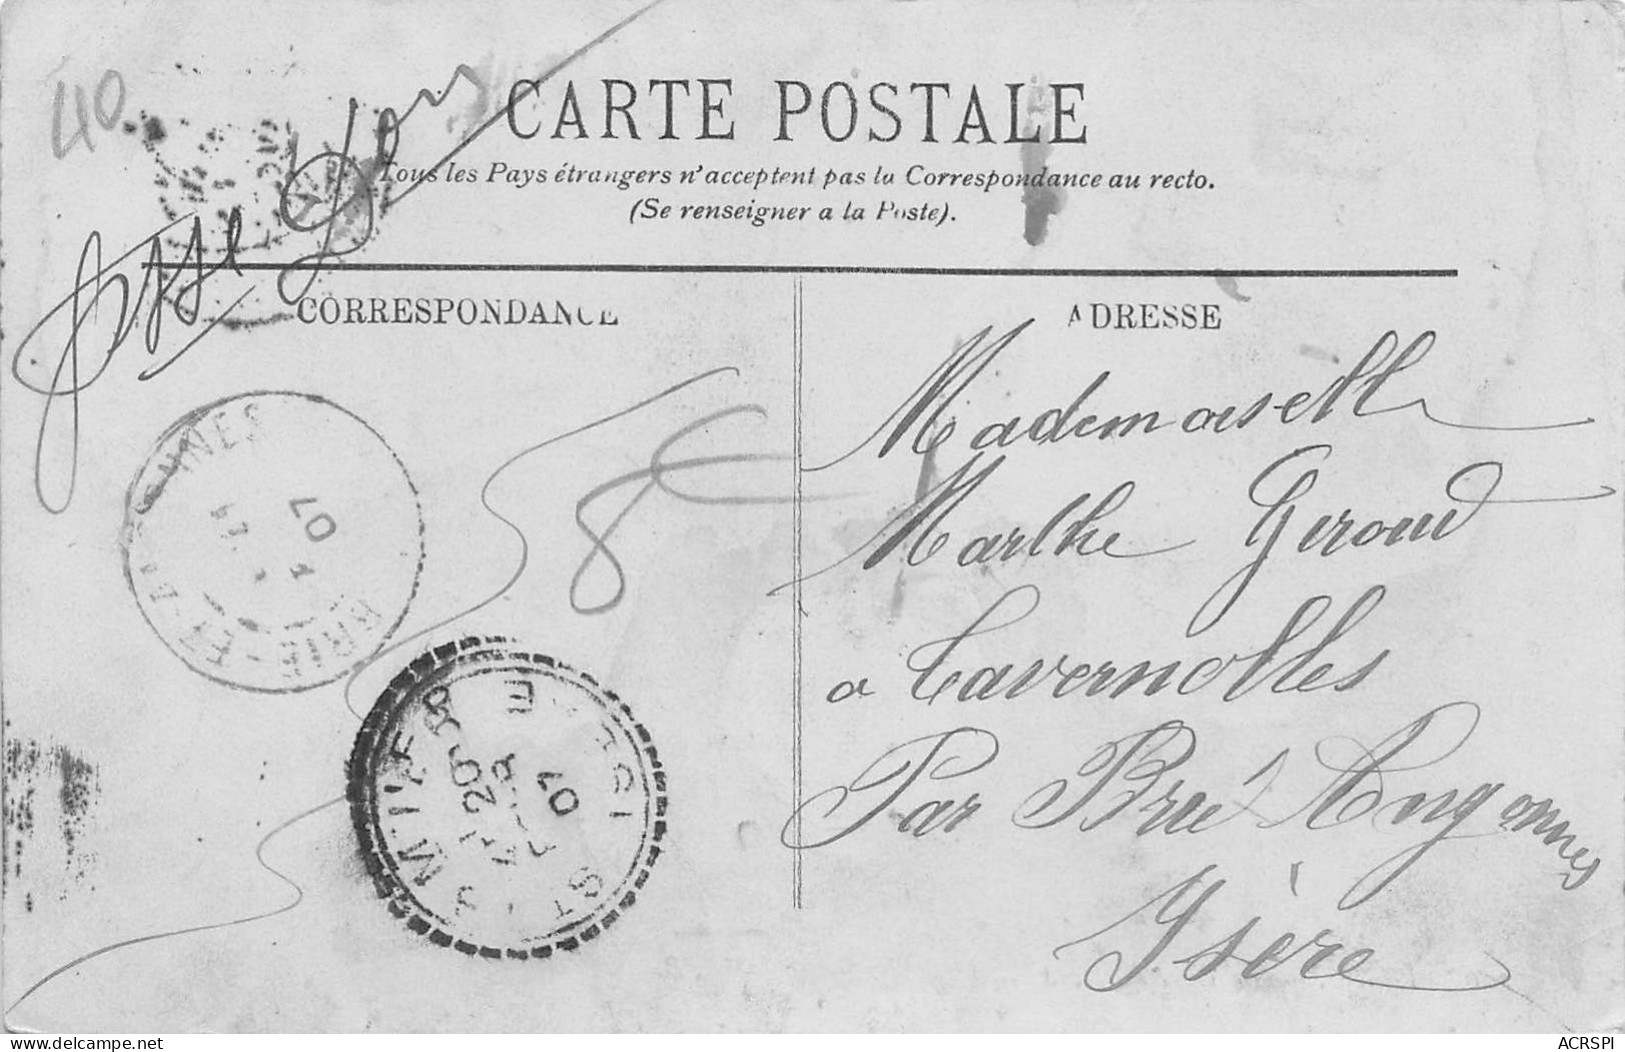 40
CARTE POSTALE
Tous les Pays étrangers n'acceptent pas la Correspondance au recto.
(Se renseigner a la Poste).
CORRESPONDANCE
ADRESSE
Mademoiselle
Marthe Giroud
a Tavernolles
Par Brié Angonnes
Isère
BRIE-ET-ANGONNES
07
ST MARTIN
20
07
ISÈRE
www.delcampe.net
ACRSPI